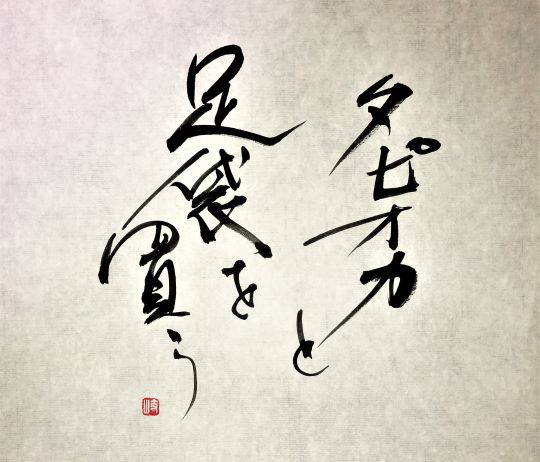 タピオカと
足袋を買う